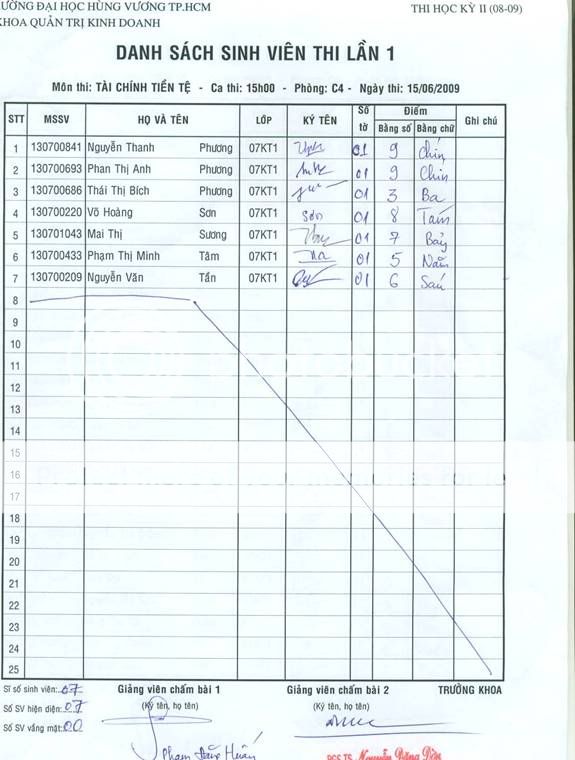 ƯỜNG ĐẠI HỌC HÙNG VƯƠNG TP.HCM
THI HỌC KỲ II (08-09)
KHOA QUẢN TRỊ KINH DOANH
DANH SÁCH SINH VIÊN THI LẦN 1
Môn thi: TÀI CHÍNH TIỀN TỆ - Ca thi: 15h00 - Phòng: C4 - Ngày thi: 15/06/2009
STT MSSV HỌ VÀ TÊN LỚP KÝ TÊN Số tờ Điểm Ghi chú
Bằng số Bằng chữ
1 130700841 Nguyễn Thanh Phương 07KT1 01 9 Chín
2 130700693 Phan Thị Anh Phương 07KT1 01 9 Chín
3 130700686 Thái Thị Bích Phương 07KT1 01 3 Ba
4 130700220 Võ Hoàng Sơn 07KT1 Sơn 01 8 Tám
5 130701043 Mai Thị Sương 07KT1 01 7 Bảy
6 130700433 Phạm Thị Minh Tâm 07KT1 01 5 Năm
7 130700209 Nguyễn Văn Tấn 07KT1 01 6 Sáu
8
9
10
11
12
13
14
15
16
17
18
19
20
21
22
23
24
25
Sĩ số sinh viên: 07 Giảng viên chấm bài 1 Giảng viên chấm bài 2 TRƯỞNG KHOA
Số SV hiện diện: 07 (Ký tên, họ tên) (Ký tên, họ tên)
Số SV vắng mặt: 00
PGS.TS. Nguyễn Đăng